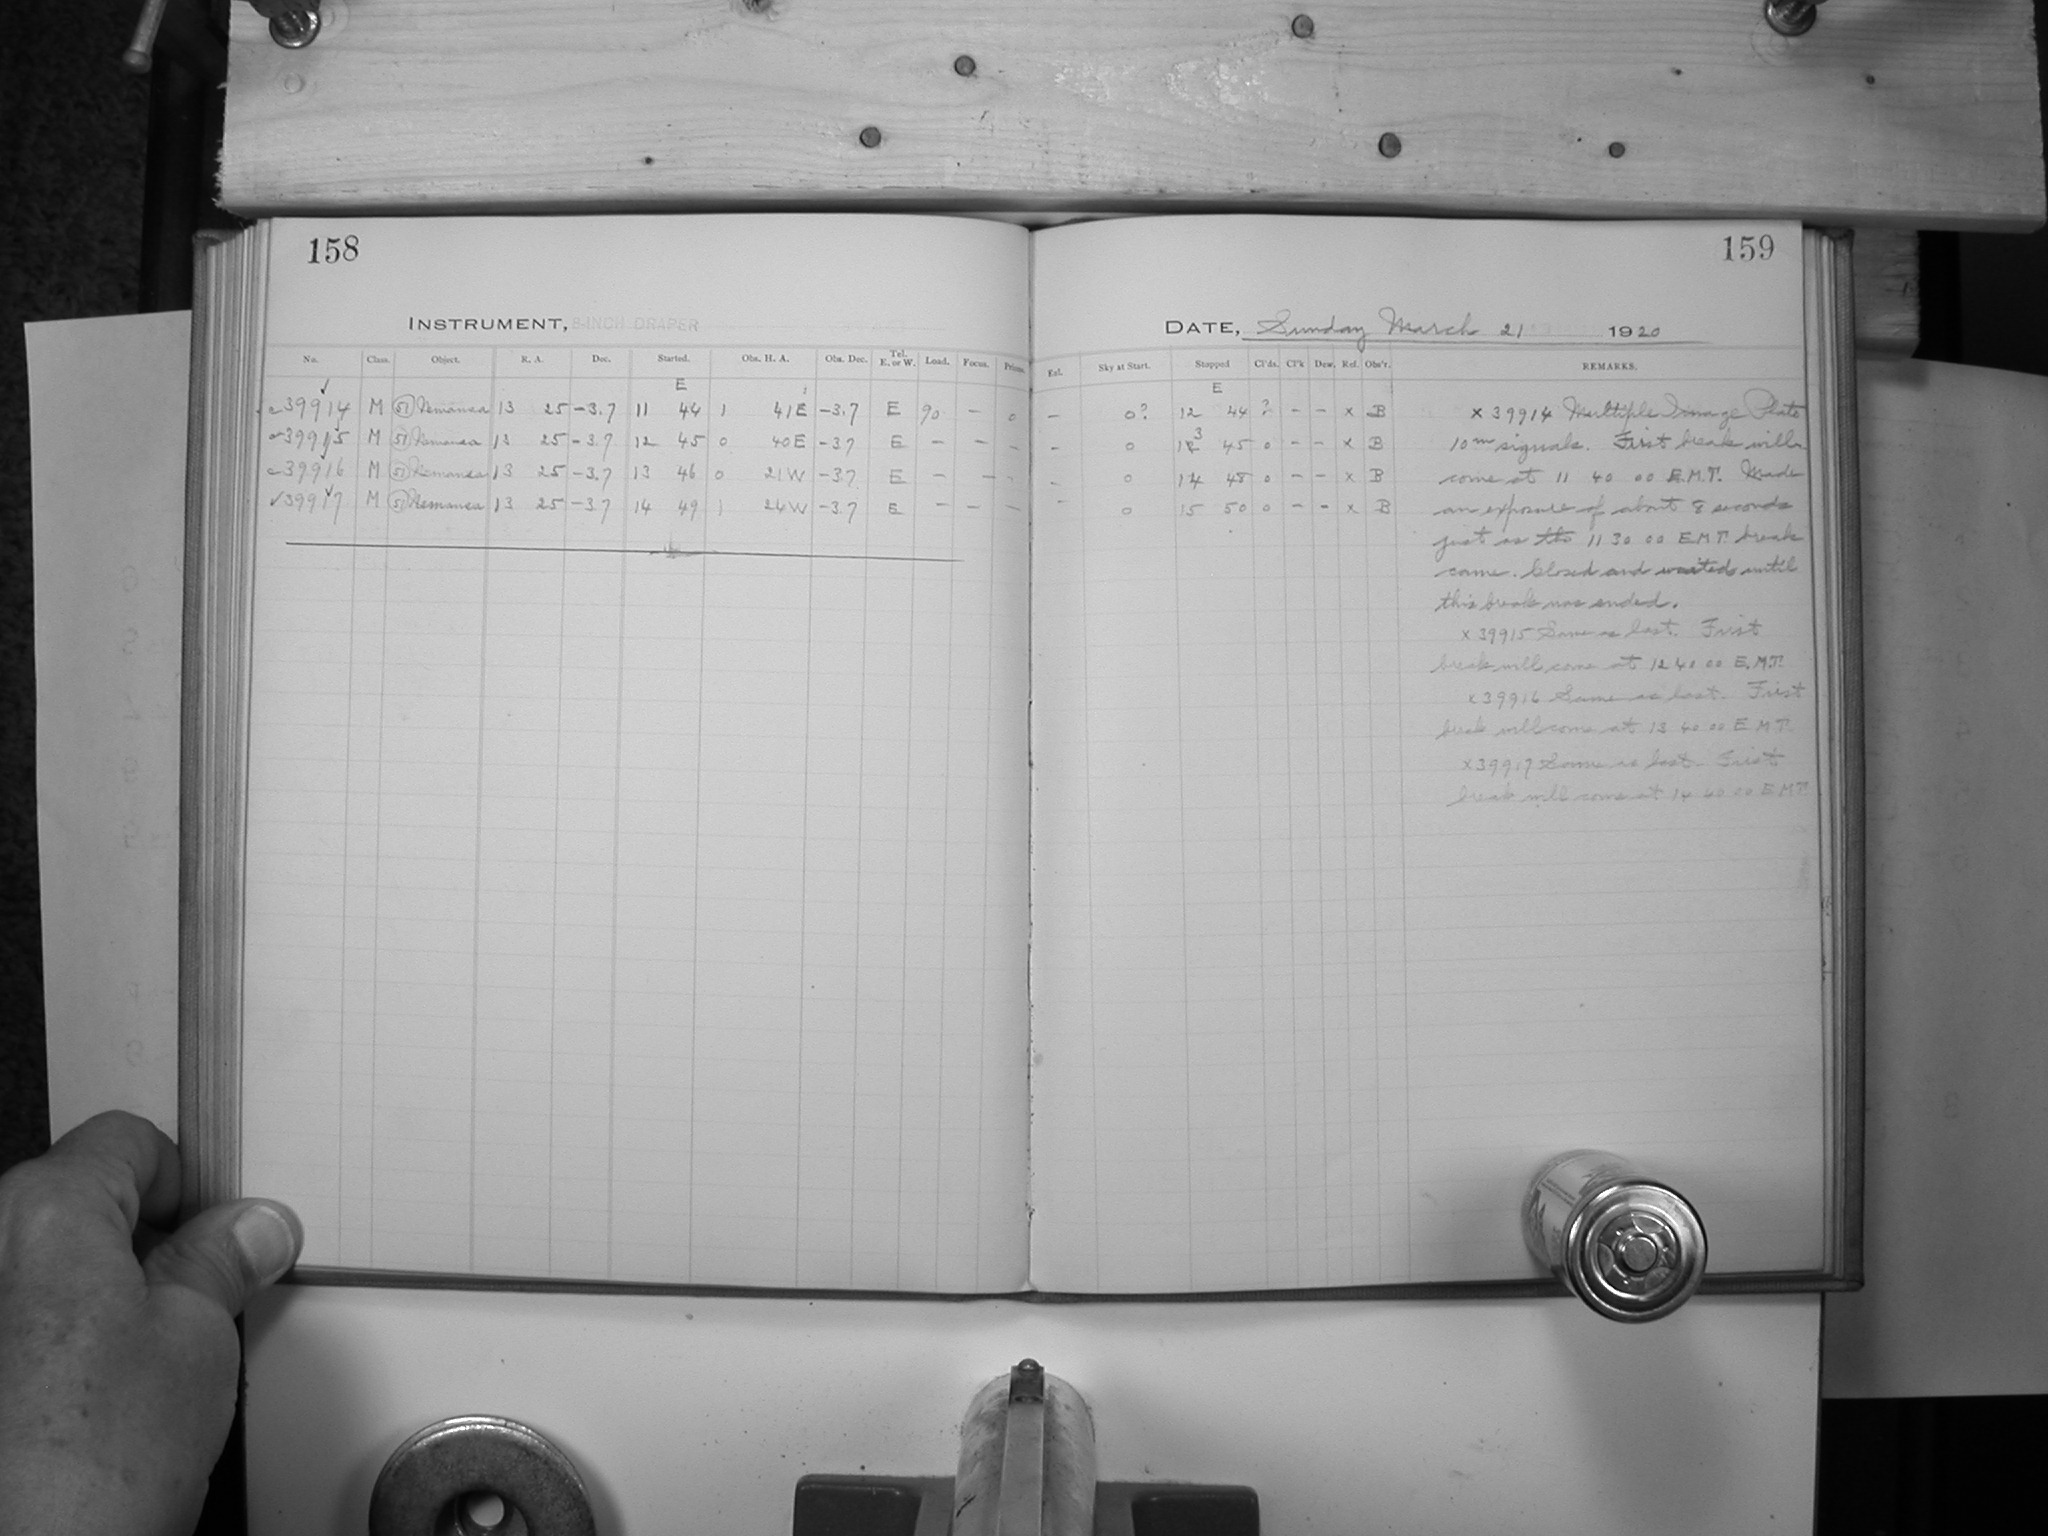 158
INSTRUMENT, 8-INCH DRAPER
No. Class. Object. R. A. Dec. Started. Obs. H. A. Obs. Dec. Tel. E. or W. Load. Focus. Prisms.
E
c39914 M (51) Nemansa 13 25 -3.7 11 44 1 41E -3.7 E 90 - 0
39915 M (51) Nemansa 13 25 -3.7 12 45 0 40E -3.7 E - - -
c39916 M (51) Nemansa 13 25 -3.7 13 46 0 21W -3.7 E - - -
39917 M (51) Nemansa 13 25 -3.7 14 49 1 24W -3.7 E - - -
159
DATE, Sunday March 21 1920
Sky at Start. Stopped Cl'ds. Cl'k Dew. Ref. Obs'r. REMARKS.
E
- 0? 12 44 ? - - x B
- 0 13 45 0 - - x B
- 0 14 48 0 - - x B
- 0 15 50 0 - - x B
x 39914 Multiple Image Plate
10m signals. First break will
come at 11 40 00 E.M.T. Made
an exposure of about 8 seconds
just as the 11 30 00 E.M.T. break
came. Closed and waited until
this break was ended.
x 39915 Same as last. First
break will come at 12 40 00 E.M.T.
x 39916 Same as last. First
break will come at 13 40 00 E M T.
x 39917 Same as last. First
break will come at 14 40 00 E M T.